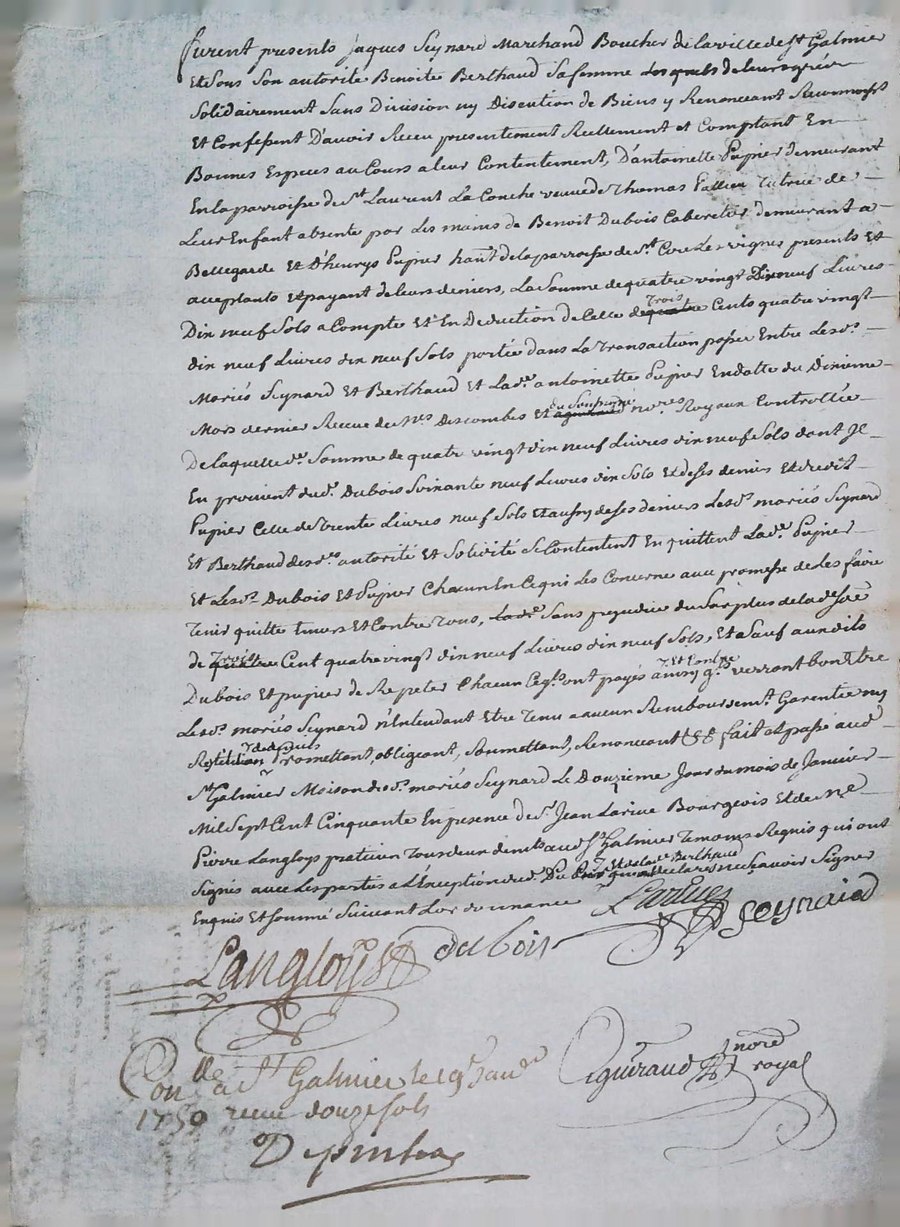 furent presents jaques Seynard Marchand Boucher de la ville de St Galmier
Et Sous Son autorité Benoite Berthaud Sa femme Lesquels de leur gré
Solidairement Sans Division ny Discution de Biens y Renonceant
Et Confessent D'avoir Receu presentement Reellement et Comptant En
Bonnes Especes au Cours a leur Contentement, D'antoinette Pupier demeurant
En la parroisse de St Laurent La Conche veuve de Thomas Tutrice de
Leur Enfant absente par Les mains de Benoit Dubois Cabaretier demeurant a
Bellegarde Et D'henrys Pupier hant de la parroisse de St Cire Les vignes presents Et
acceptants Et payant de leurs deniers, La Somme de quatre vingt Dixneuf Livres
Dix neuf Sols a Compte Et En Deduction de Celle de trois Cents quatre vingt
dix neuf Livres dix neuf Sols portée dans La Transaction passée Entre Lesds
Mariés Seynard Et Berthaud Et Lade antoinette Pupier En datte du Dixieme
Mars dernier Receue de Mes Descombes Et nores Royaux Controllée
De laquelle de Somme de quatre vingt dix neuf Livres dix neuf Sols dont Il
En provient dud. Dubois Soixante neuf Livres dix Sols Et deses deniers Et dudit
Pupier Celle de Trente Livres neuf Sols Et aussy deses deniers Lesds mariés Seynard
Et Berthaud desds autorité Et Solidité Se Contentent En quittent Lade Pupier
Et Lesds Dubois Et Pupier Chacun En Ce qui Les Concerne avec promesse de Les faire
Tenir quitte Envers Et Contre Tous, Sans prejudice du Surplus de lade So.e
de Trois Cent quatre vingt dix neuf Livres dix neuf Sols, Et a Sauf auxdits
Dubois Et pupier de Repeter Chacun Ce qls ont payés ainsy qls verront bon Etre
Lesds mariés Seynard n'Entendant Etre Tenu a aucun Remboursemt Garentie ny
Repetition Promettant, obligeant, Soumettant, Renonceant &&& fait et passé aud.
St Galmier Maison desds mariés Seynard Le Douzieme Jour du mois de Janvier
Mil Sept Cent Cinquante En presence de Sr Jean Larive Bourgeois Et de Me
Pierre Langloys praticien Tous deux demts aud. St Galmier Temoins Requis qui ont
Signés avec Les parties a L'Exception de Berthaud declaré ne Scavoir Signer
Enquis Et Sommé Suivant L'ordonnance Larive
Langloys dubois Seynard
Conlle à St Galmier le 19e janer
1750 receu douze sols
aguiraud nore royal